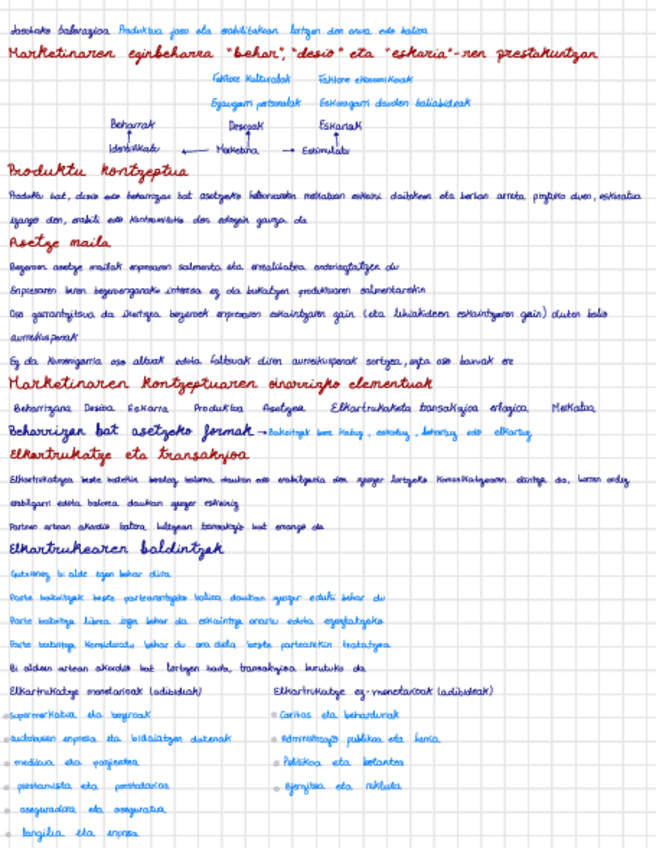 Jasotako balorazioa Produktua jaso eta erabiltzean lortzen den onura edo balioa
Marketinaren eginbeharra "behar", "desio" eta "eskaria"-ren prestakuntzan
Faktore kulturalak Faktore ekonomikoak
Ezaugarri pertsonalak Eskuragarri dauden baliabideak
Beharrak Desioak Eskariak
Identifikatu Marketina Estimulatu
Produktu kontzeptua
Produktu bat, desio edo beharrizan bat asetzeko helburuarekin merkatuan eskaini daitekeen eta bertan arreta piztuko duen, eskuratua
izango den, erabili edo kontsumituko den edozein gauza da
Asetze maila
Bezeroen asetze mailak enpresaren salmenta eta errealitatea du
Enpresaren beren bezeroenganako interesa ez da bukatzen produktuaren salmentarekin
Oso garrantzitsua da ikertzea bezeroek enpresaren eskaintzaren gain (eta lehiakideen eskaintzaren gain) duten balio
aurreikuspenak
Ez da komenigarria oso altuak edota faltsuak diren aurreikuspenak sortzea, ezta oso baxuak ere
Marketinaren kontzeptuaren oinarrizko elementuak
Beharrizana Desioa Eskaria Produktua Asetzea Elkartrukaketa transakzioa erlazioa Merkatua
Beharrizan bat asetzeko formak → Bakoitzak bere kabuz, eskatuz, behartuz edo elkartuz
Elkartrukatze eta transakzioa
Elkartrukatzea beste batekin balioa daukan edo erabilgarria den zerbait lortzeko komunikatzearen ekintza da, horren ordez
erabilgarri edota balorea daukan zerbait eskainiz
Parteen artean akordio batera heltzean transakzio bat emango da
Elkartrukearen baldintzak
Gutxienez bi alde egon behar dira
Parte bakoitzak beste partearentzako balioa daukan zerbait eduki behar du
Parte bakoitza librea izan behar da eskaintza onartu edota ezeztatzeko
Parte bakoitza konsideratu behar du ona dela beste partearekin tratatzea
Bi aldeen artean akordio bat lortzen bada, transakzioa burutuko da
Elkartrukatze monetarioak (adibideak) Elkartrukatze ez-monetarioak (adibideak)
supermerkatua eta bezeroak Caritas eta behardunak
autobusen enpresa eta bidaiatzen dutenak Administrazio publikoa eta herria
medikua eta pazientea Politikoa eta botantea
prestamista eta prestatarioa Ejerzitoa eta rekluta
aseguradora eta aseguratua
langilea eta enpresa